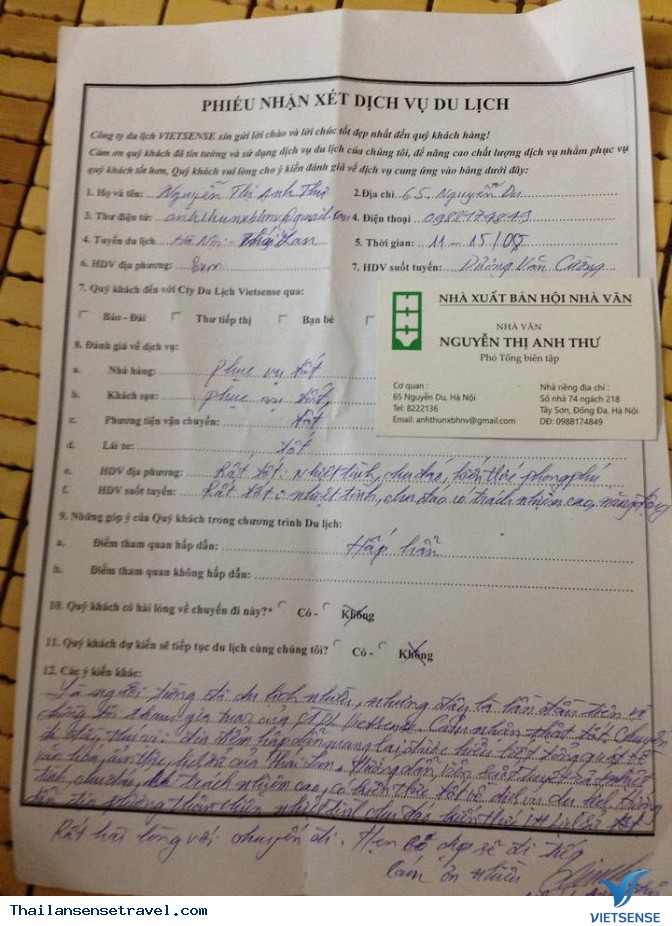 PHIẾU NHẬN XÉT DỊCH VỤ DU LỊCH
Công ty du lịch VIETSENSE xin gửi lời chào và lời chúc tốt đẹp nhất đến quý khách hàng!
Cảm ơn quý khách đã tin tưởng và sử dụng dịch vụ du lịch của chúng tôi, để nâng cao chất lượng dịch vụ nhằm phục vụ
quý khách tốt hơn, Quý khách vui lòng cho ý kiến đánh giá về dịch vụ cung ứng vào bảng dưới đây:
1. Họ và tên: Nguyễn Thị Anh Thư 2.Địa chỉ 65 Nguyễn Du
3. Thư điện tử: anhthunxbhnv@gmail.com 4. Điện thoại 0988174849
4. Tuyến du lịch Hà Nội - Thái Lan 5. Thời gian: 11 - 15/
6. HDV địa phương: 7. HDV suốt tuyến: Văn Cường
7. Quý khách đến với Cty Du Lịch Vietsense qua:
Báo - Đài Thư tiếp thị Bạn bè
NHÀ XUẤT BẢN HỘI NHÀ VĂN
NHÀ VĂN
NGUYỄN THỊ ANH THƯ
Phó Tổng biên tập
Cơ quan :
65 Nguyễn Du, Hà Nội
Tel: 8222136
Email: anhthunxbhnv@gmail.com
Nhà riêng địa chỉ :
Số nhà 74 ngách 218
Tây Sơn, Đống Đa, Hà Nội
DĐ: 0988174849
8. Đánh giá về dịch vụ:
a. Nhà hàng: phục vụ tốt
b. Khách sạn: phục vụ tốt
c. Phương tiện vận chuyển: tốt
d. Lái xe: tốt
e. HDV địa phương: Rất tốt: nhiệt tình, chu đáo, kiến thức phong phú
f. HDV suốt tuyến: Rất tốt: nhiệt tình, chu đáo có trách nhiệm cao, năng động
9. Những góp ý của Quý khách trong chương trình Du lịch:
a. Điểm tham quan hấp dẫn: Hấp dẫn
b. Điểm tham quan không hấp dẫn:
10. Quý khách có hài lòng về chuyến đi này?* Có - Không
11. Quý khách dự kiến sẽ tiếp tục du lịch cùng chúng tôi? Có - Không
12. Các ý kiến khác:
Là người từng đi du lịch nhiều, nhưng đây là lần đầu tiên
chúng tôi tham gia tour của Vietsense. Cảm nhận thật tốt. Chuyến
đi thú vị: địa điểm hấp dẫn, mang lại hiểu biết tổng quát về
văn hoá, ẩm thực, lịch sử của Thái Lan. Hướng dẫn viên nhiệt
tình, chu đáo, trách nhiệm cao, có kiến thức tốt về du lịch. Hướng
dẫn địa phương thân thiện nhiệt tình chu đáo, kiến thức lịch sử tốt
Rất hài lòng với chuyến đi. Hẹn có dịp sẽ đi tiếp
Cám ơn nhiều
Thailansensetravel.com
VIETSENSE